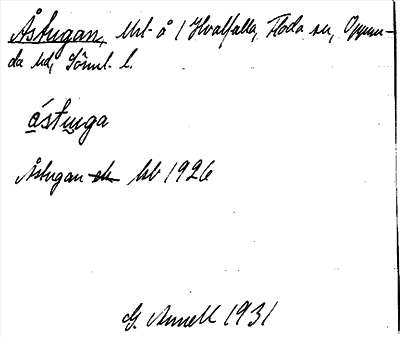 Åstugan, Urt å / Hvalfalla, Floda sn, Oppun-
da hd, Södml. l.
ástuga
Åstugan kb 1926
G. Annell 1931